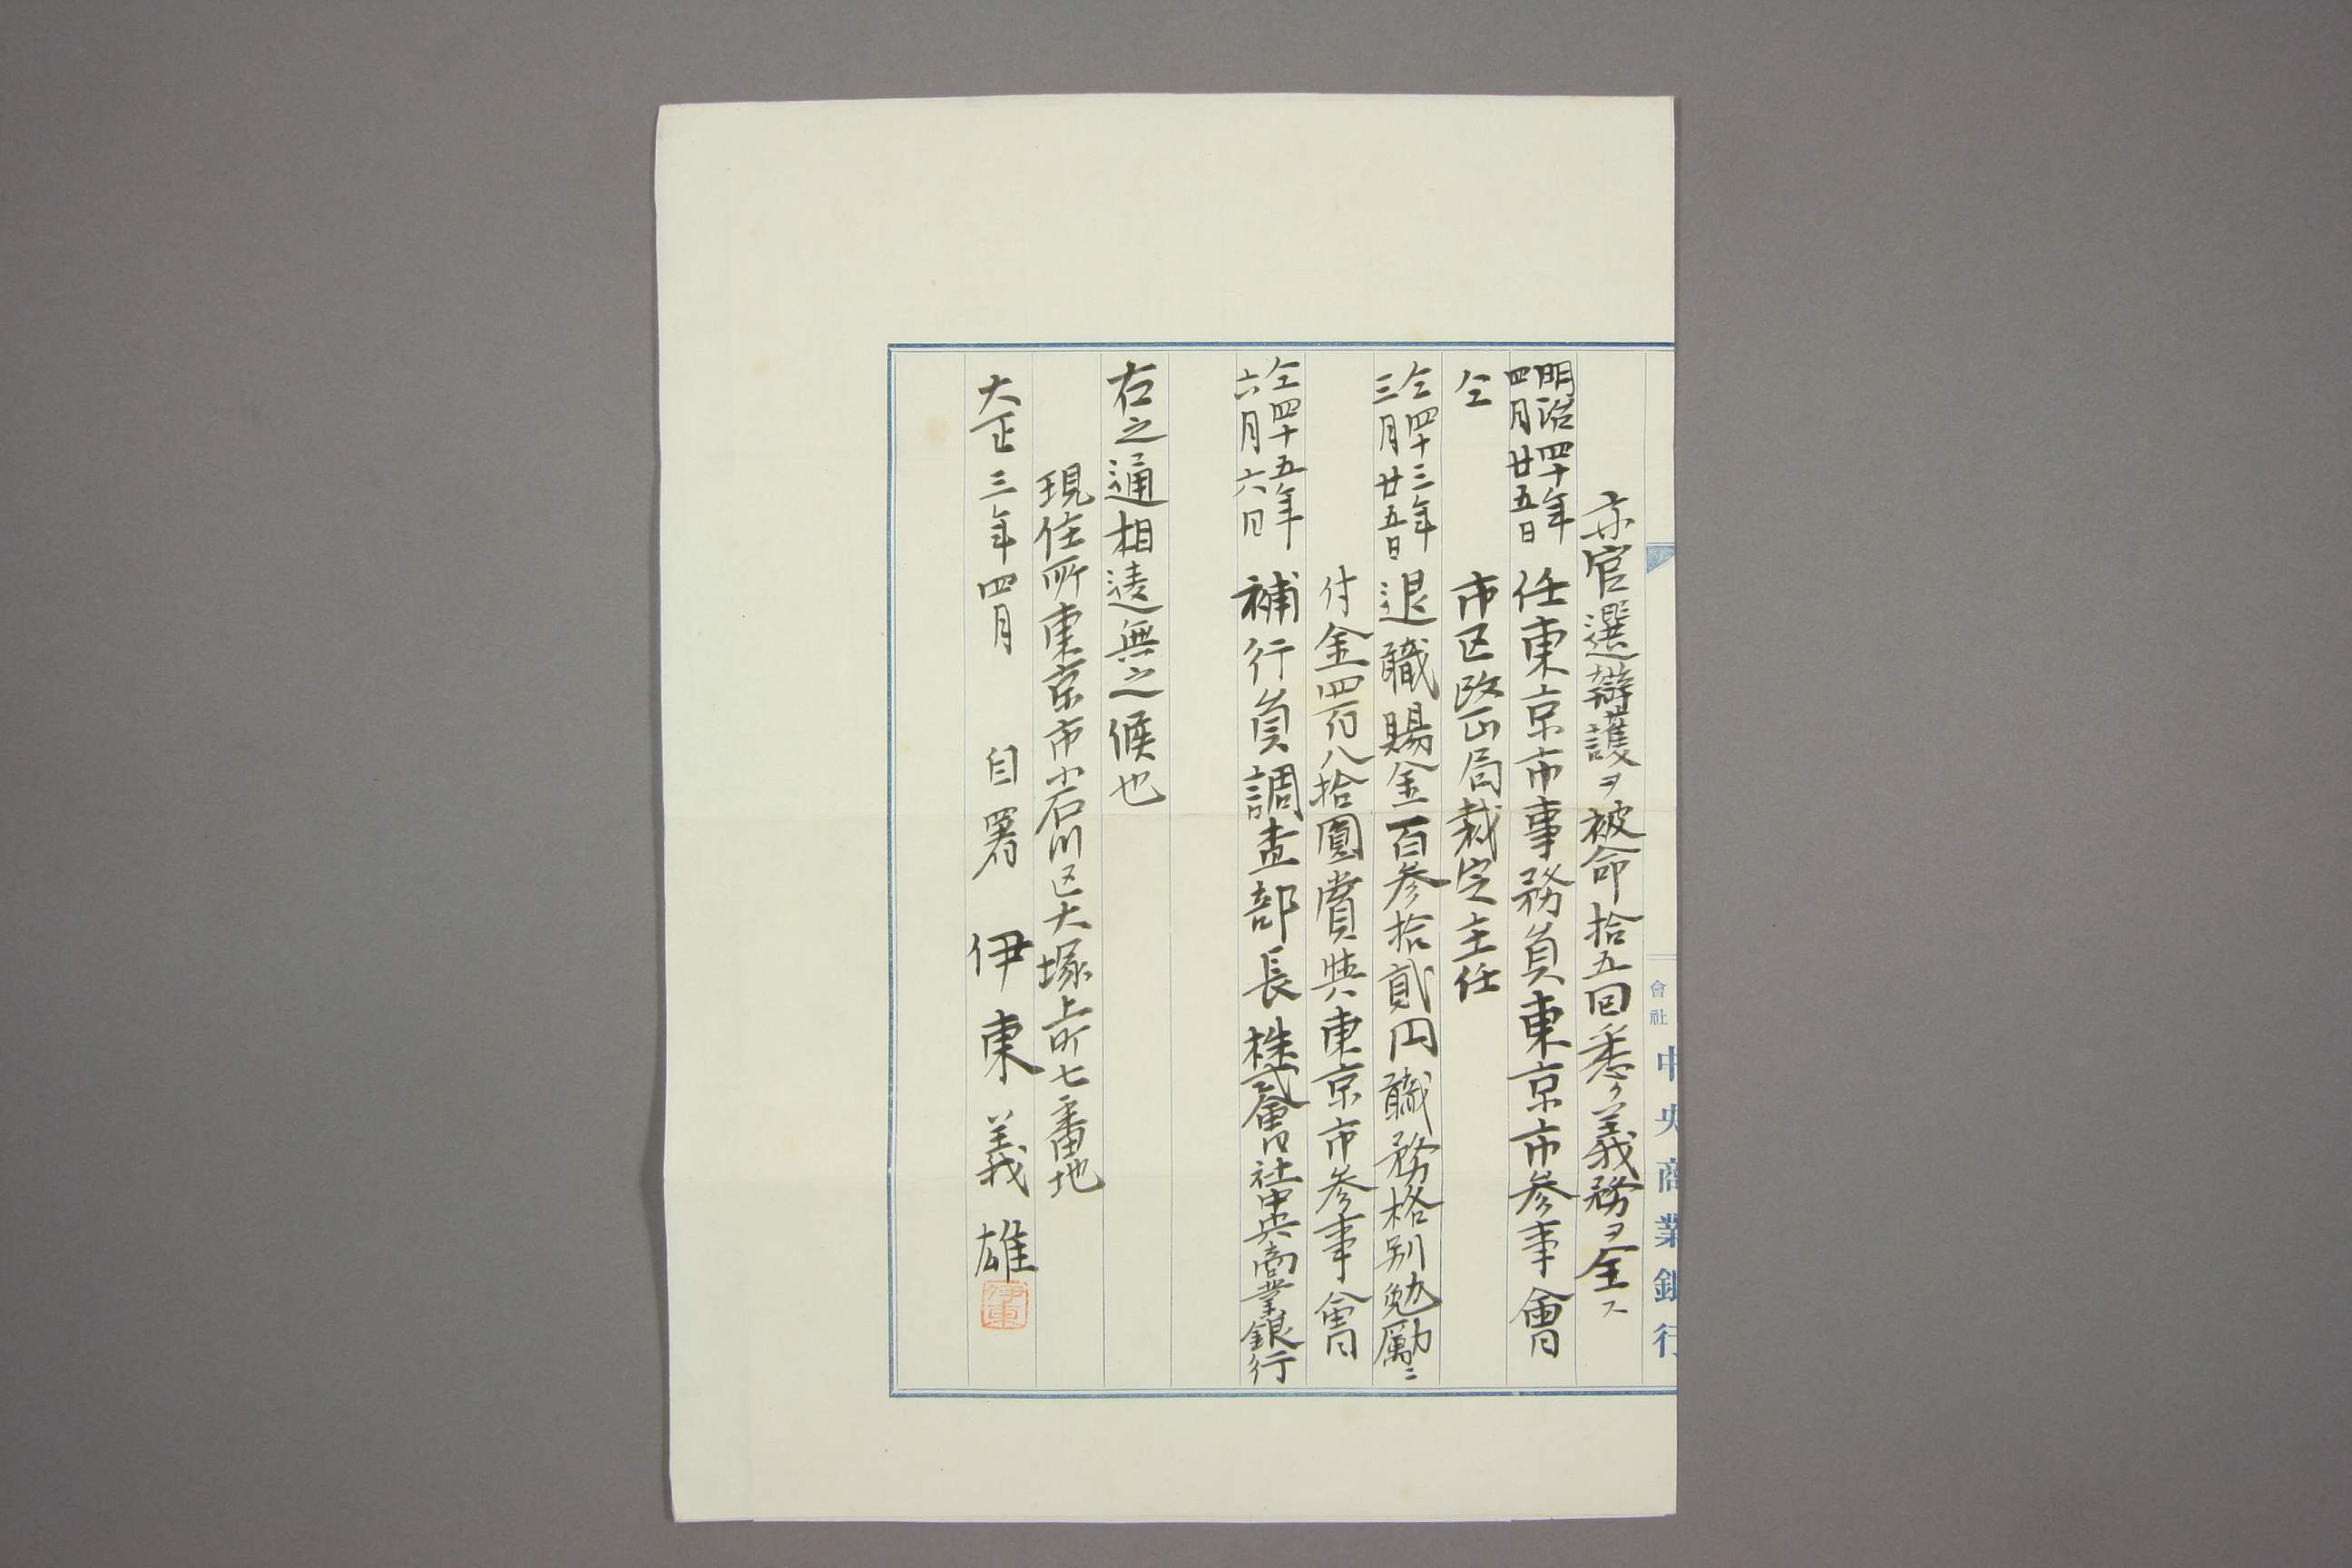 會社 中央商業銀行
亦官選辯護ヲ被命拾五回悉ク義務ヲ全ス
明治四十年四月廿五日 任東京市事務員東京市参事會
仝 市区改正局裁定主任
仝四十三年三月廿五日 退職賜金百参拾貳円職務格別勉勵ニ
付金四百八拾圓賞典東京市参事會
仝四十五年六月六日 補行員調査部長株式會社中央商業銀行
右之通相違無之候也
現住所東京市小石川区大塚上町七番地
大正三年四月 自署 伊東義雄
伊東